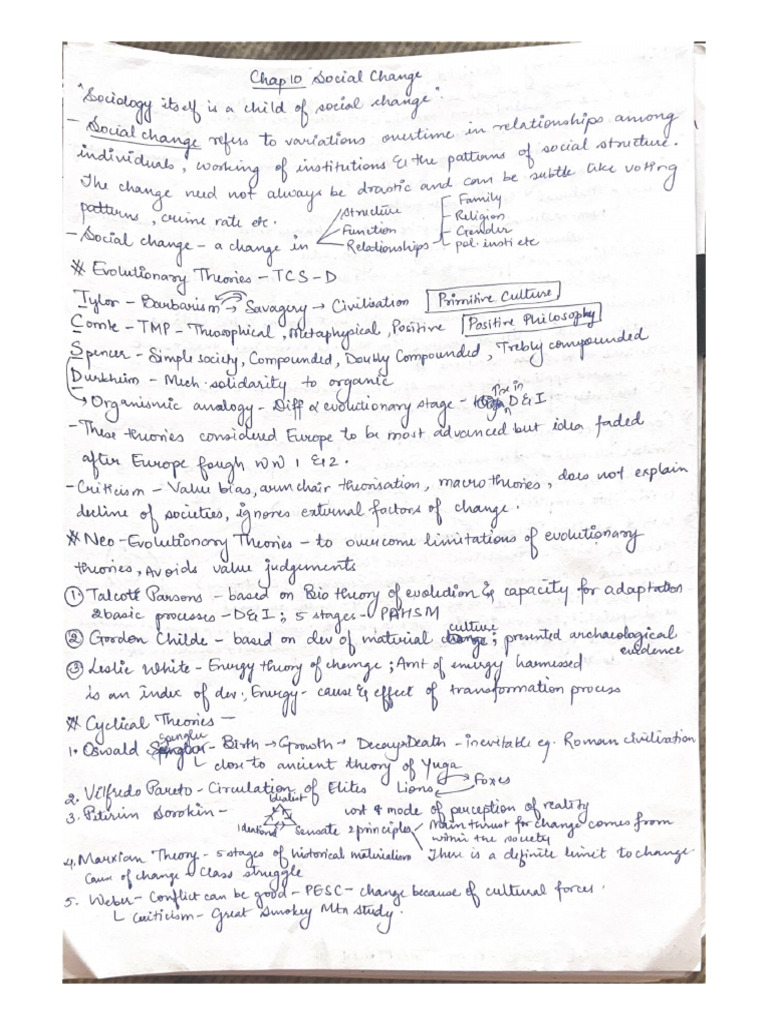 Chap 10 Social Change
"Sociology itself is a child of social change".
- Social change refers to variations overtime in relationships among
individuals, working of institutions & the patterns of social structure.
The change need not always be drastic and can be subtle like voting
patterns, crime rate etc.
- Social change - a change in
Structure
Function
Relationships
Family
Religion
Gender
pol. insti etc
* Evolutionary Theories - TCS-D
Tylor - Barbarism → Savagery → Civilisation Primitive Culture
Comte - TMP - Theosophical, Metaphysical, Positive Positive Philosophy
Spencer - Simple society, Compounded, Doubly Compounded, Trebly compounded
Durkheim - Mech. solidarity to organic
→ Organismic analogy - Diff α evolutionary stage - D & I
- These theories considered Europe to be most advanced but idea faded
after Europe fough WW 1 & 2.
- Criticism - Value bias, arm chair theorisation, macro theories, does not explain
decline of societies, ignores external factors of change.
* Neo-Evolutionary Theories - to overcome limitations of evolutionary
theories, Avoids value judgements
1. Talcott Parsons - based on Bio theory of evolution & capacity for adaptation
2 basic processes - D & I; 5 stages - PAHSM
2 Gordon Childe - based on dev of material culture; presented archaeological
evidence
3 Leslie White - Energy theory of change; Amt of energy harnessed
is an index of dev; Energy - cause & effect of transformation process
* Cyclical Theories -
1. Oswald Spenglu - Birth → Growth → Decay → Death - inevitable eg. Roman Civilisation
close to ancient theory of Yuga
2. Vilfredo Pareto - Circulation of Elites Lions Foxes
3. Pitirin Sorokin - Idealist Ideational Sensate
wort & mode of perception of reality
2 principles
Main thrust for change comes from
within the society
There is a definite limit to change
4. Marxian Theory - 5 stages of historical materialism
Cause of change - Class struggle
5. Weber - Conflict can be good - PESC - change because of cultural forces.
Criticism - Great Smokey Mtn study.